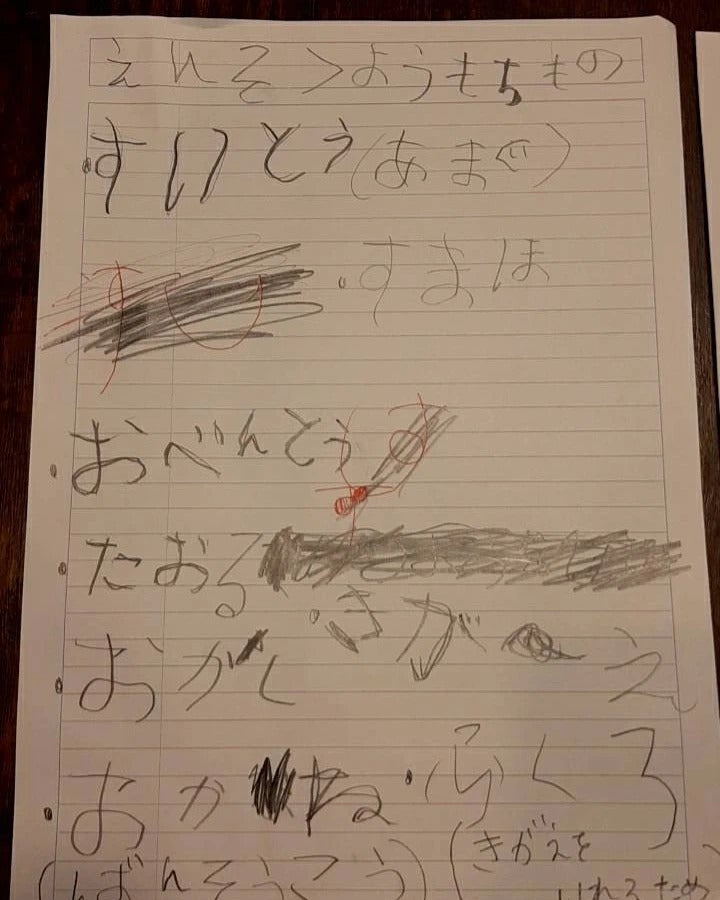 えんそくようもちもの
・すいとう(あまぐ)
・すまほ
・おべんとう
・たおる
・きがえ
・おかし
・おかね ・ふくろ
(ばんそうこう) (きがえを
いれるため